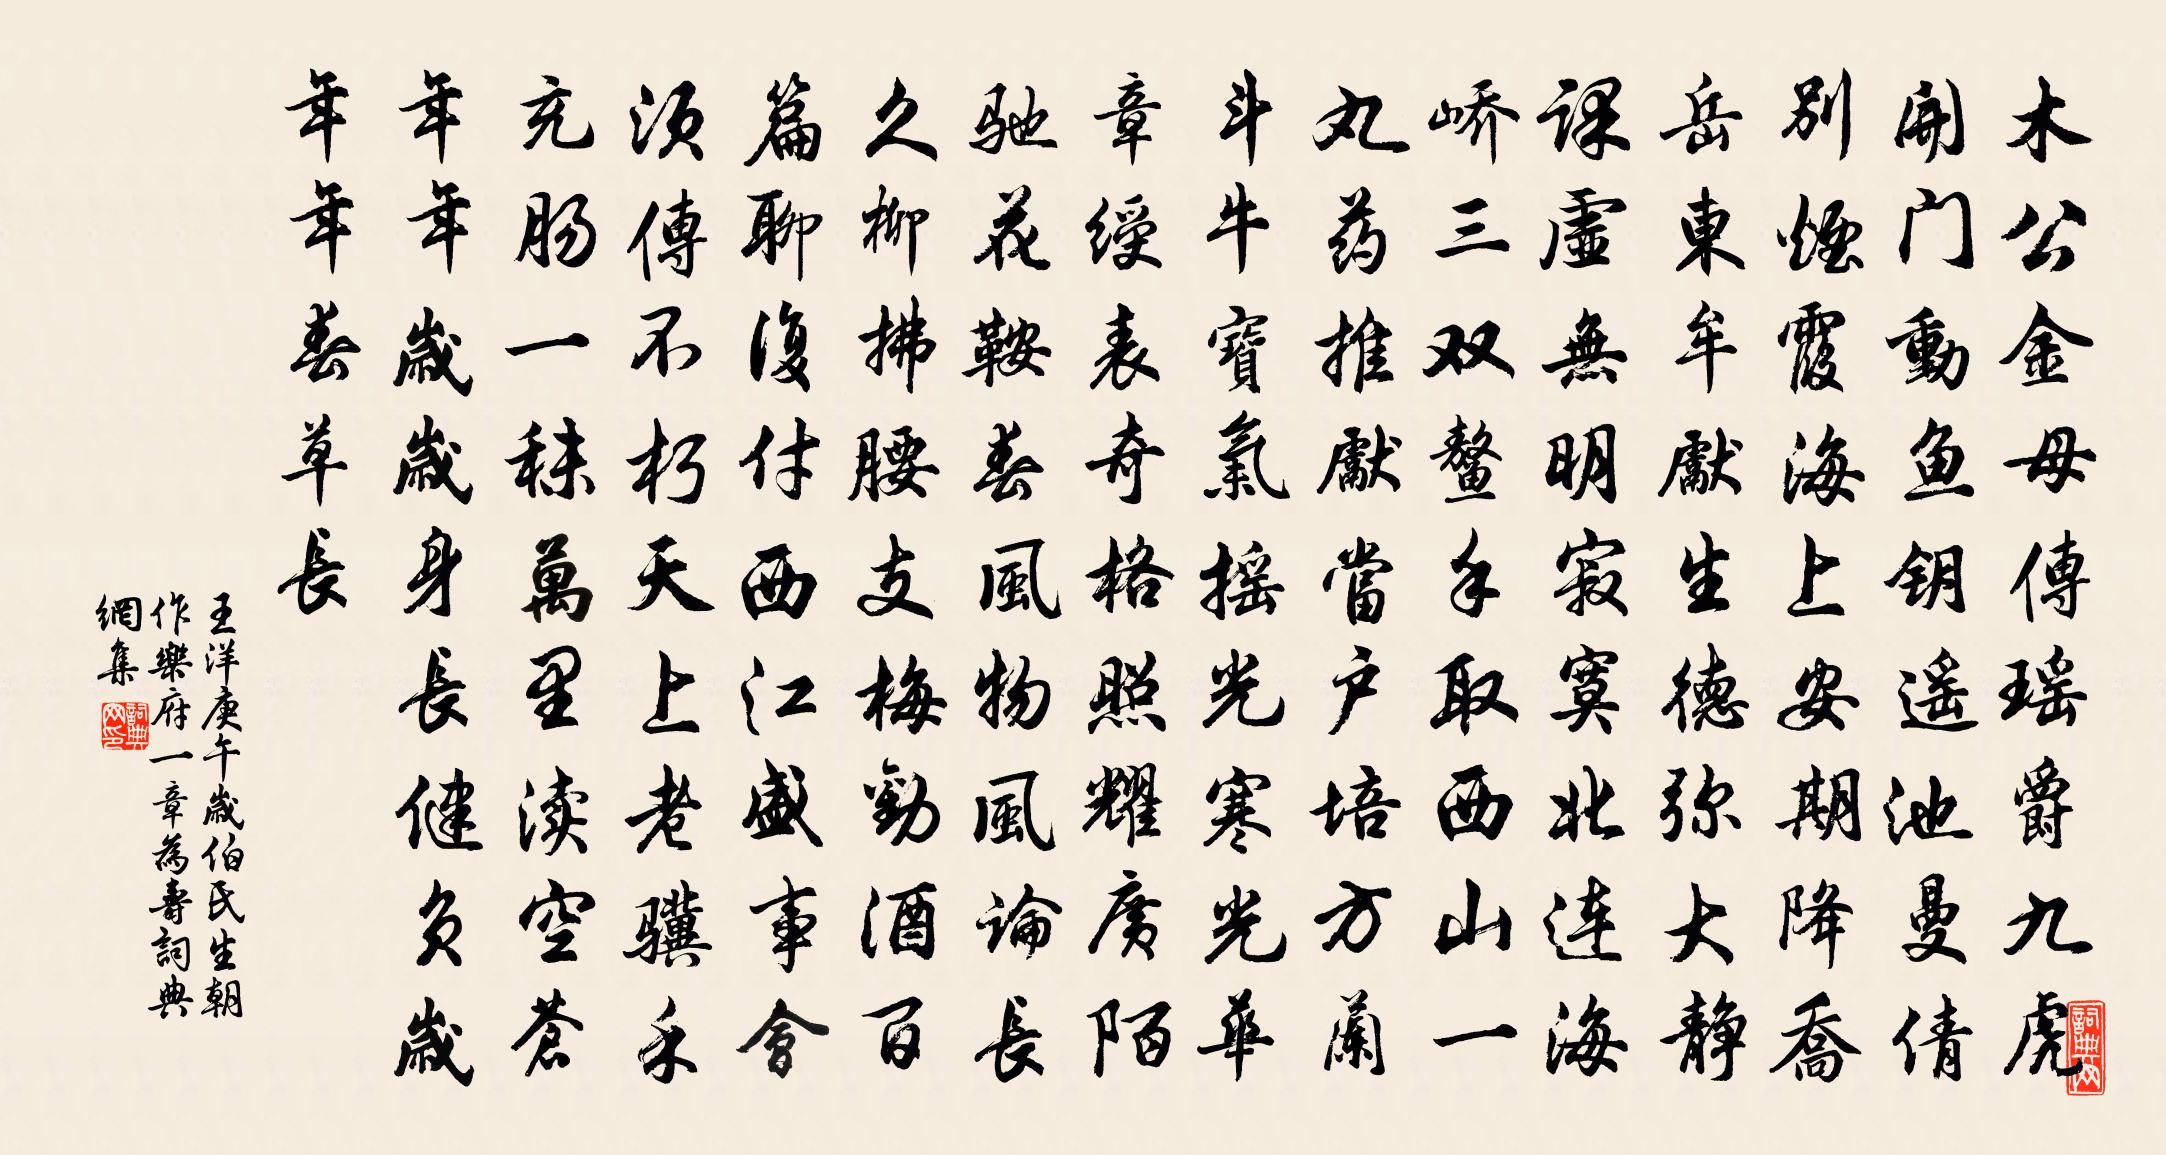 木公金母傳瑶爵九虎
開门動魚钥遥池曼倩
别煙霞海上安期降喬
岳東牟獻生德弥大静
課虛無明寂寞北连海
嶠三双鳌手取西山一
丸药推獻當户培方蘭
斗牛寶氣摇光寒光華
章綬表奇格照耀廣陌
驰花鞍春風物風論長
久柳拂腰支梅勸酒百
篇聊復付西江盛事會
须傳不朽天上老骥禾
充肠一秣萬里渎空蒼
年年歲歲身長健负歲
年年春草長
王洋庚午歲伯氏生朝
作樂府一章為壽詞典
網集
詞典网
詞典网印